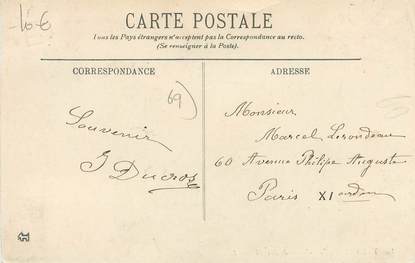 -10-€
CARTE POSTALE
Tous les Pays étrangers n'acceptent pas la Correspondance au recto.
(Se renseigner à la Poste).
CORRESPONDANCE
69)
Souvenir
J Ducros
ADRESSE
Monsieur
Marcel Lerondeau
60 Avenue Philipe Auguste
Paris XI